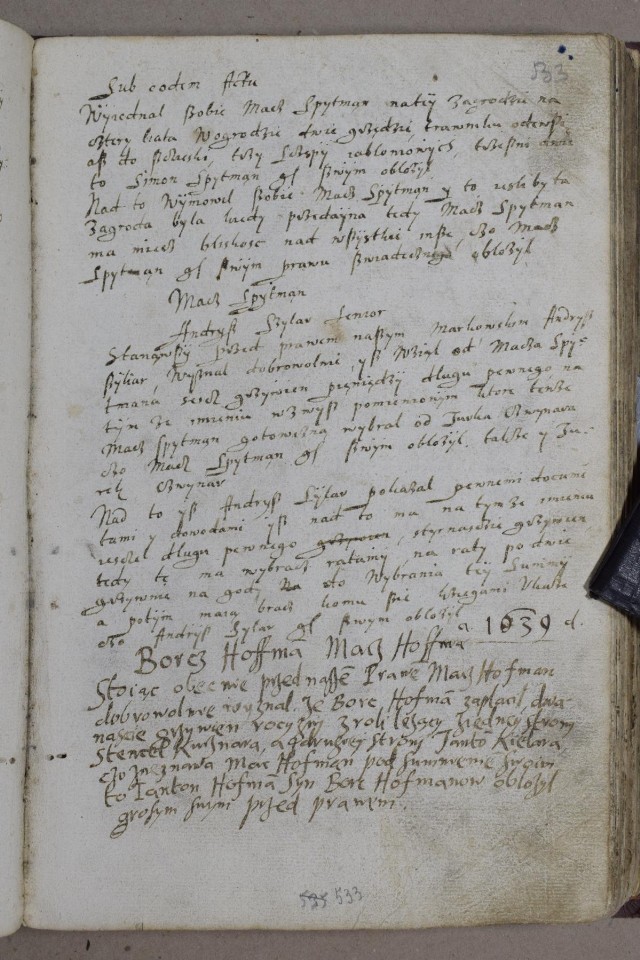 533
Sub eodem Actu
Wyiednal szobie Macz Spytman na tey Zagrodzie na
cztery liata Wogrodzie dwie grzędzi, trawniku
asz do sieczeski, trzy szczepy iabloniowych, trzesni dwie
to Simon Spytman gſ swym oblożył
Nad to Wymowił szobie Macz Spytman y to iesli by ta
Zagroda byla kiedy przedayna tedy Macz Spytman
ma miecz bliskosc nad wszystkei insze czo Macz
Spytman gſ swym prawu oblożył
Macz Spytman
Andrysz Szylar senior
Stanąwszy przed prawem naszym Markowskim Andrysz
Szyliar, wyznal dobrowolnie ysz Wziął od Macza Spy=
tmana sescz grzywien pieniędzy dlugu pewnego na
tym ze imieniu wzwysz pomienionym ktore tenze
Macz Spytman gotowizną wybral od Jurka Czwynara
czo Macz Spytman gſ swym oblożył. takze y Ju=
rek Czwynar
Nad to ysz Andrysz Sylar pokazal pewnemi docume
tami y dowodami ysz nad to ma na tymze imieniu
ieszcze dlugu pewnego, styrnascie grzywien
tedy tę ma wybracz ratamy, na raty po dwie
grzywnie na gody do Wybrania tey Summy
a potym maią bracz komu sie kxięgami Ukaze
czo Andrysz Sylar gſ swym oblożył
Borcz Hoffmā Macz Hoffmā a 1639 d.
Stoiąc obecnie przed naszē Prawē Macz Hofman
dobrowolnie wyznal, ze Borc Hofmā zapłacil dwa
nascie grzywien rocyzni z roli leżący z iedney strony
Stencel Kusnara, a z drugiey strony Jantō Kielara
czo zeznawa Mac Hofman pod sumnieniē swoim
to Ianton Hofmā Syn Borc Hofmanow oblożył
groszym swym przed prawem.
535 533